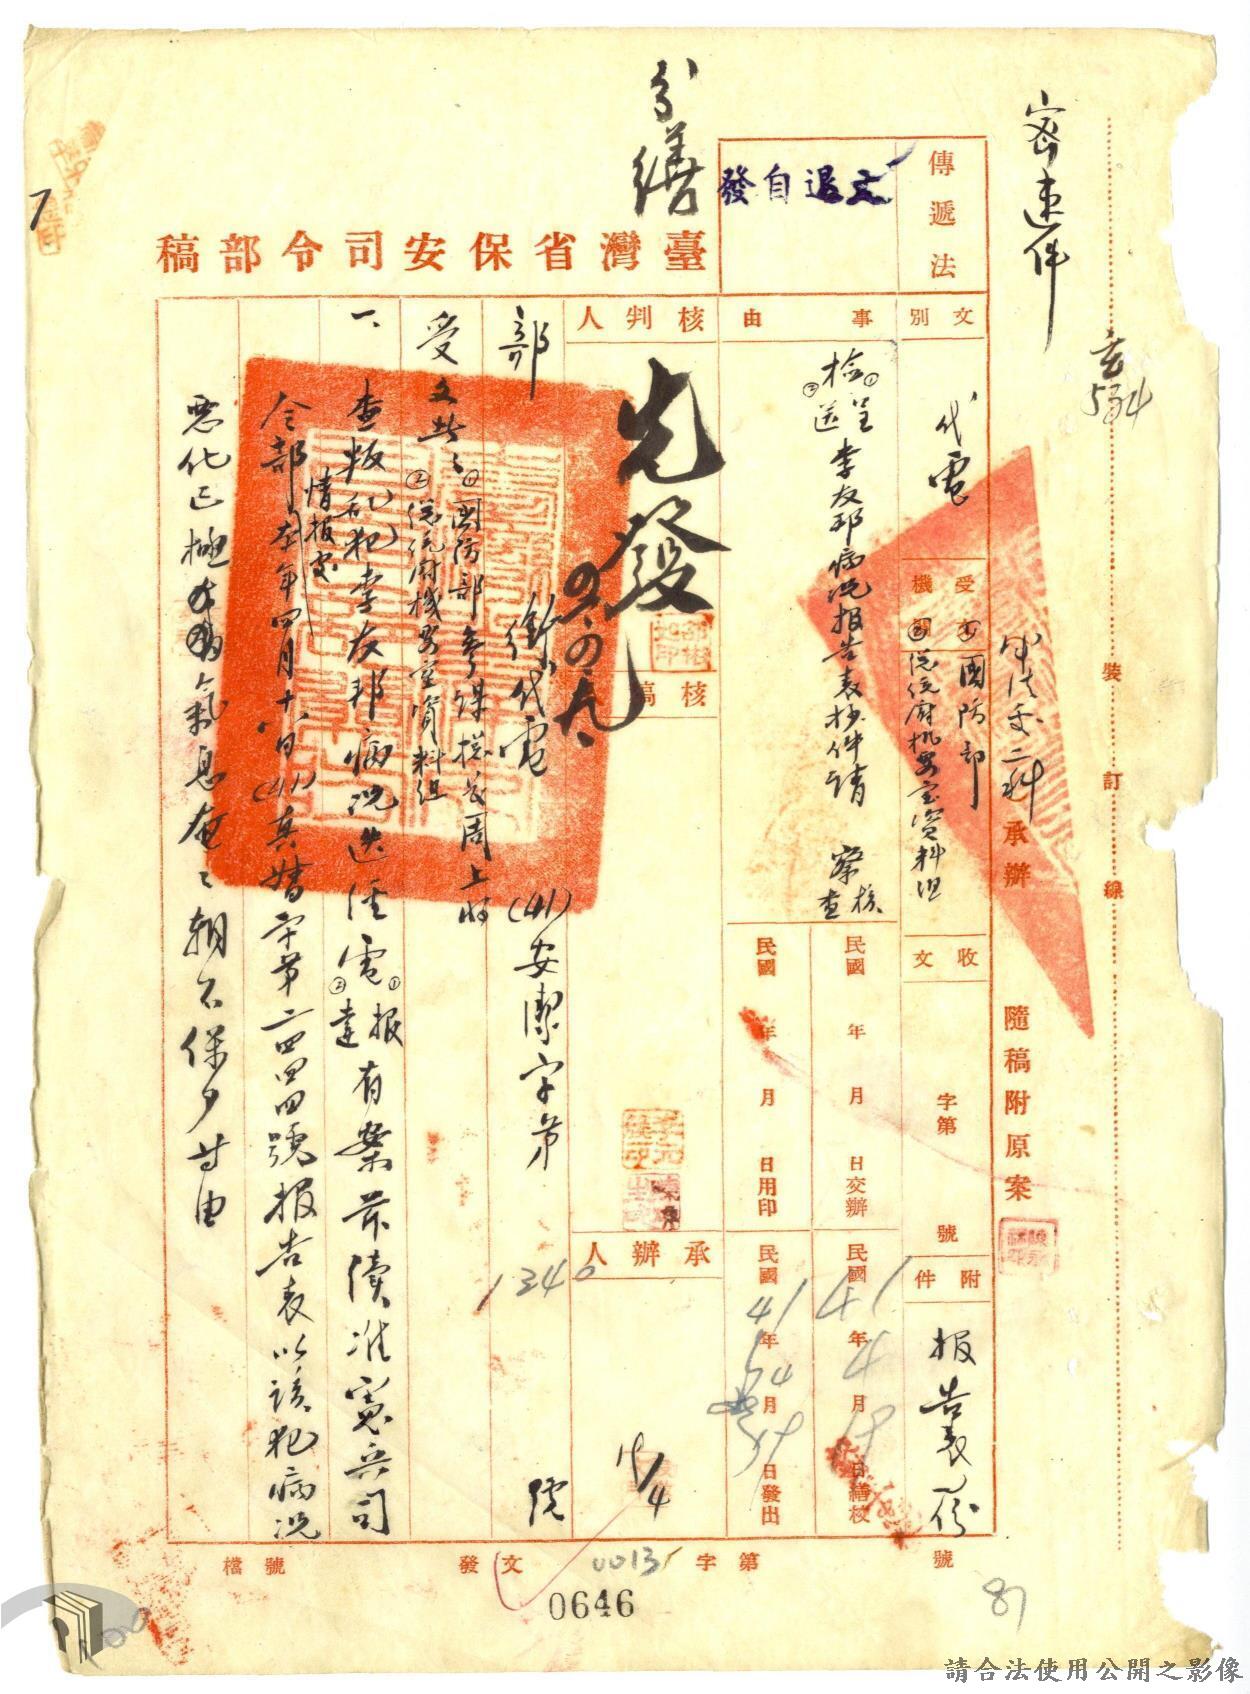 密速件
分繕
文退自發
傳遞法
臺灣省保安司令部稿
文別
代電
受文機關
①國防部
②總統府机要室資料組
事由
①檢呈
②送
李友邦病況報告表抄件請
核
察
查
核判人
先發
核稿
承辦人
承辦
隨稿附原案
收文
字第
號
附件
報告表一份
民國
年
月
日交辦
民國41年4月19日繕校
民國
年
月
日用印
民國41年4月
日發出
部
銜代電
(41)安潔字第
1346
號
受文者：①國防部參謀總長周上將
②總統府機要室資料組
一、查叛亂犯李友邦病況迭經電
①報
②達
有案茲續准憲兵司
令部
情报處
本年四月十八日(41)真情字第二四四四號报告表以該犯病況
惡化已極
氣息奄々朝不保夕等由
裝訂線
檔號
發文
字第
號
0013
0646
87
請合法使用公開之影像